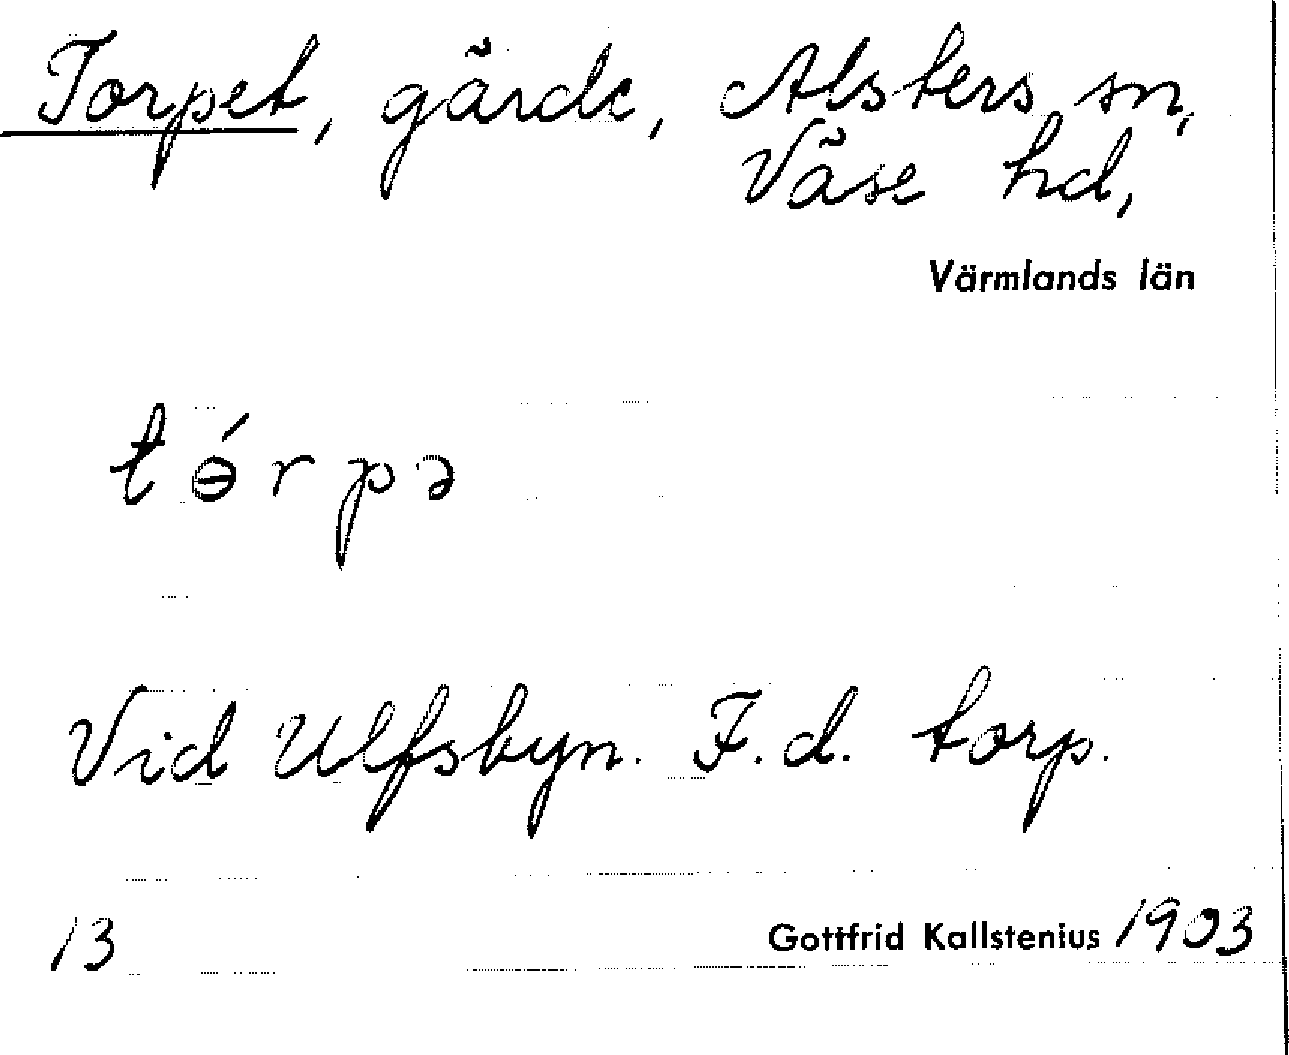 Torpet, gärde, Alsters sn,
Väse hd,
Värmlands län
tɵ́rpə
Vid Ulfsbyn. F.d. torp.
13 Gottfrid Kallstenius 1903